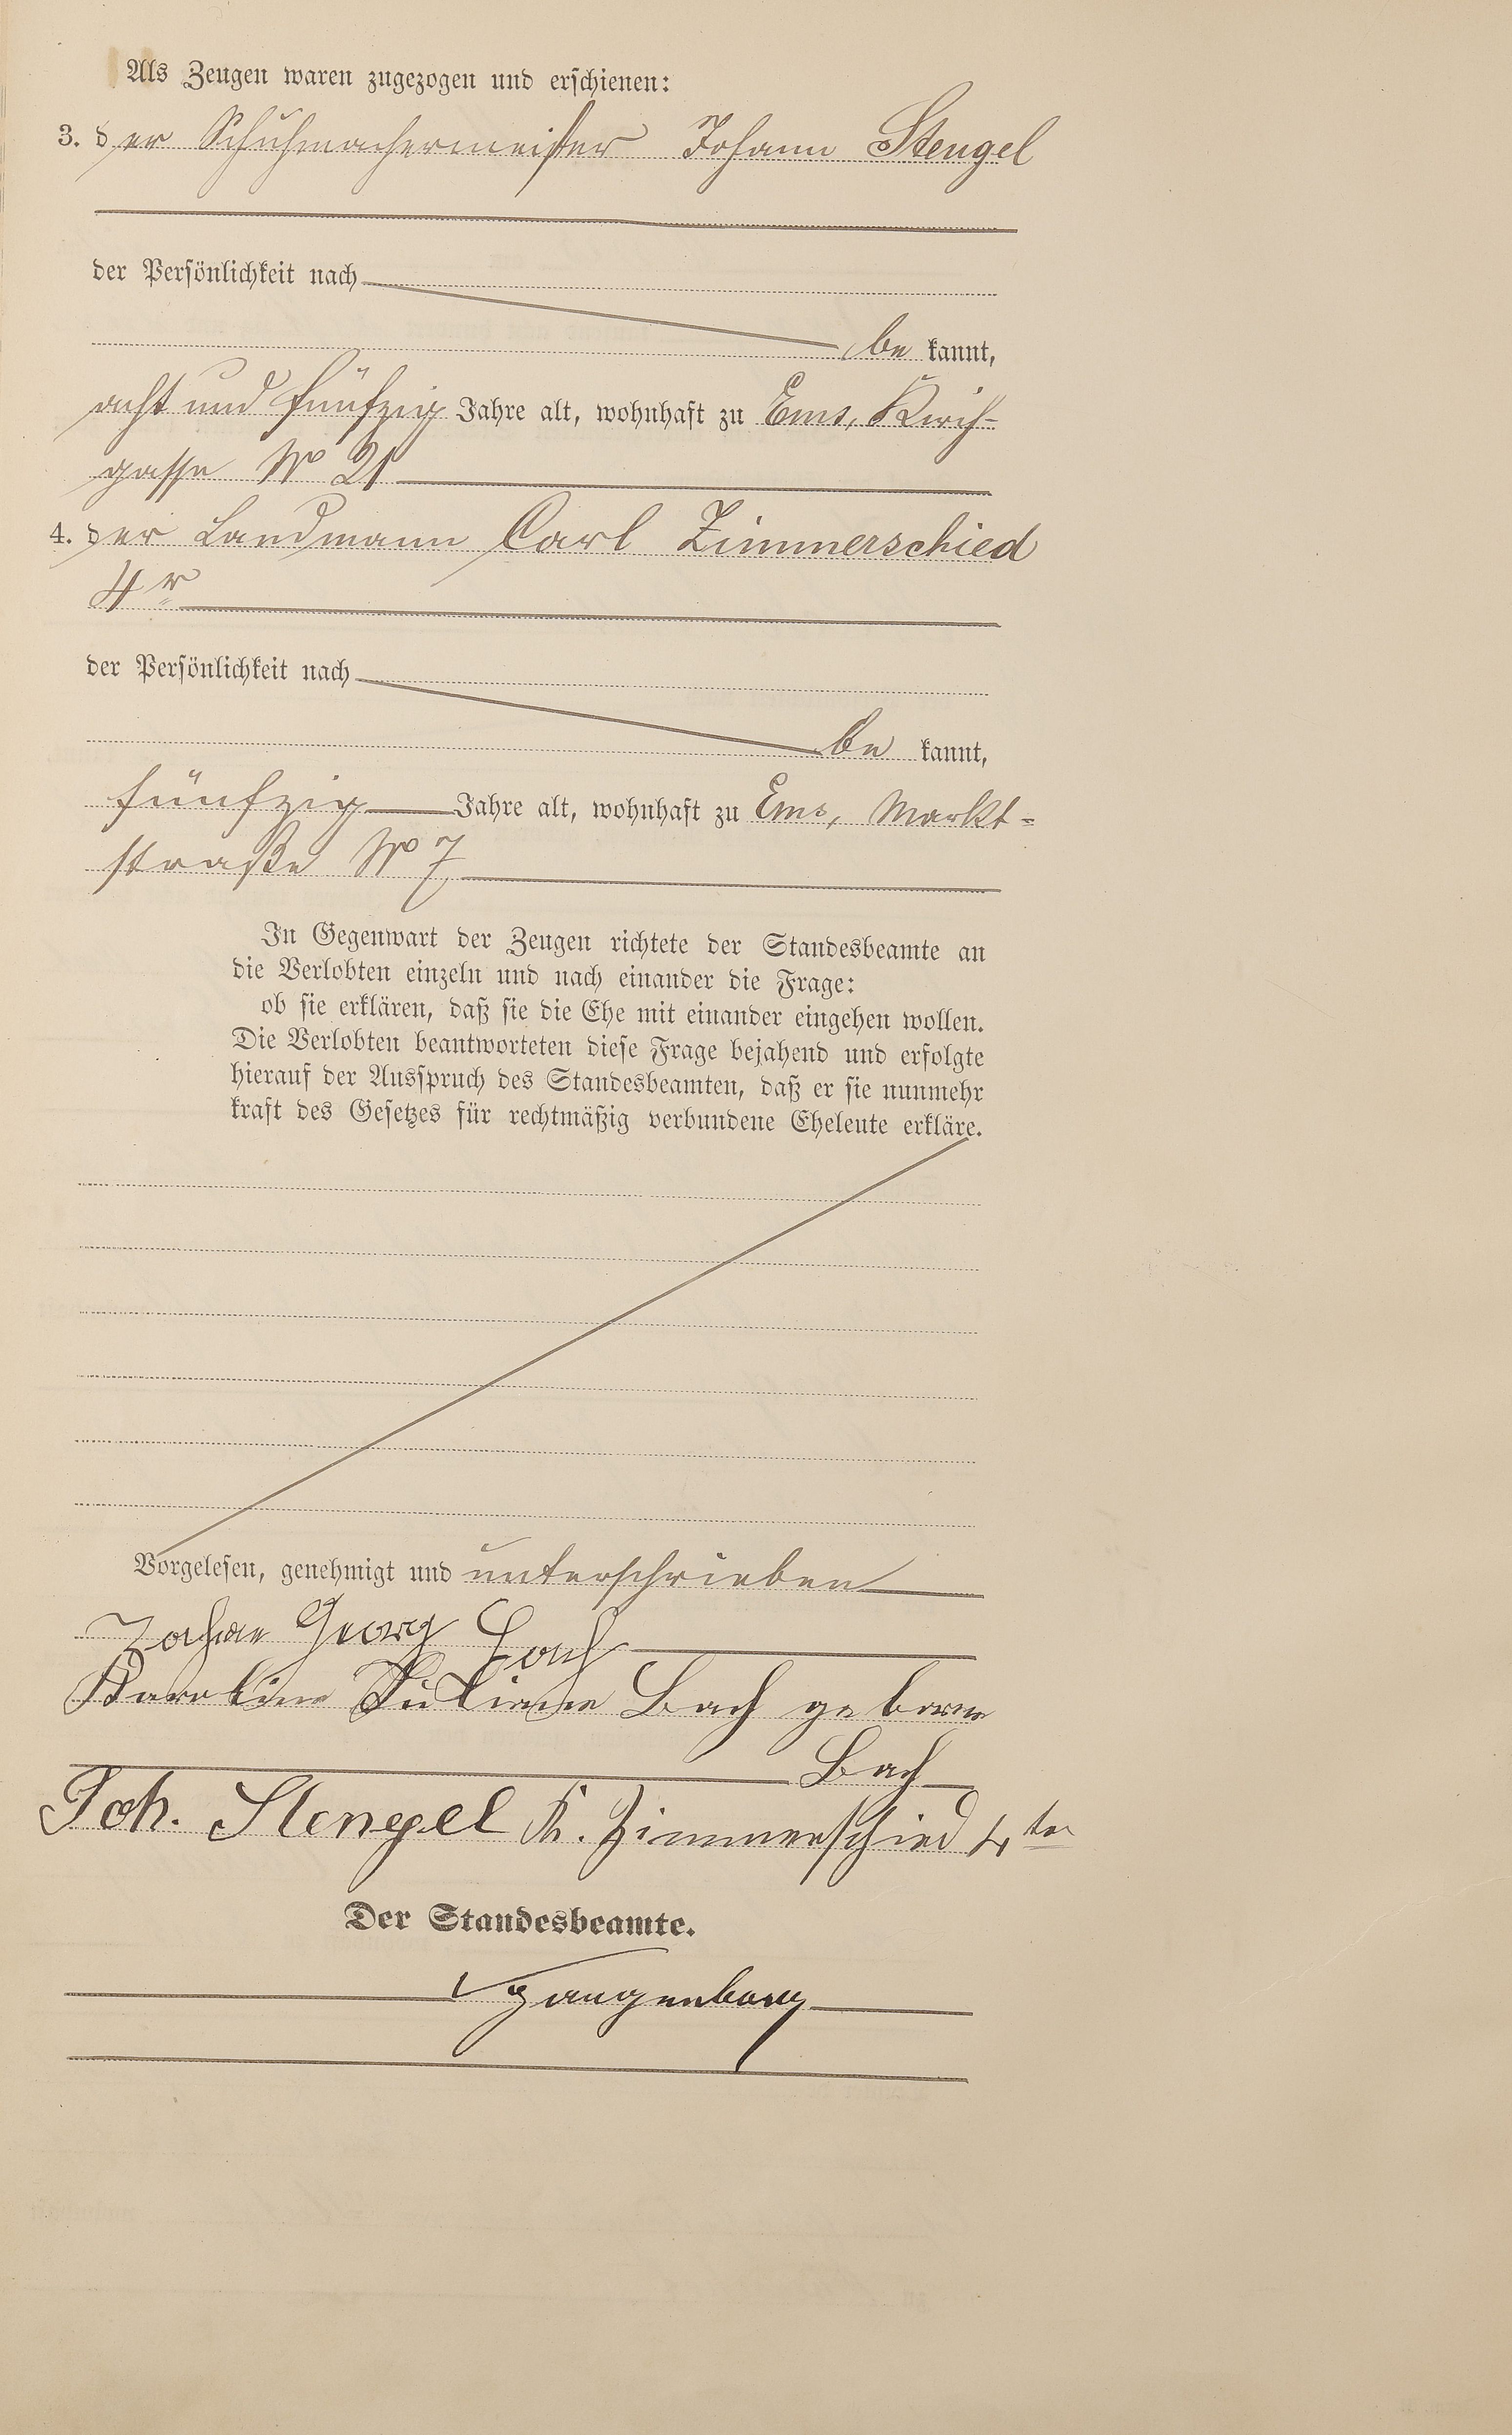 Als Zeugen waren zugezogen und erschienen:
3. der Schuhmachermeister Johann Stengel
der Persönlichkeit nach
be kannt,
acht und fünfzig Jahre alt, wohnhaft zu Ems, Kirch-
gasse No 21
4. der Landmann Carl Zimmerschied
4r
der Persönlichkeit nach
be kannt,
fünfzig Jahre alt, wohnhaft zu Ems, Markt-
straße No 7
In Gegenwart der Zeugen richtete der Standesbeamte an
die Verlobten einzeln und nach einander die Frage:
ob sie erklären, daß sie die Ehe mit einander eingehen wollen.
Die Verlobten beantworteten diese Frage bejahend und erfolgte
hierauf der Ausspruch des Standesbeamten, daß er sie nunmehr
kraft des Gesetzes für rechtmäßig verbundene Eheleute erkläre.
Vorgelesen, genehmigt und unterschrieben
Johann Georg Bach
Karoline Juliane Bach geborne
Bach
Joh. Stengel K. Zimmerschied 4ter
Der Standesbeamte.